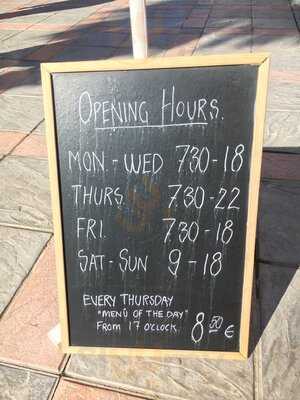 OPENING HOURS.
MON. - WED 7.30 - 18
THURS. 7.30 - 22
FRI. 7.30 - 18
SAT - SUN 9 - 18
EVERY THURSDAY
"MENÚ OF THE DAY"
FROM 17 O'CLOCK. 8 50 €